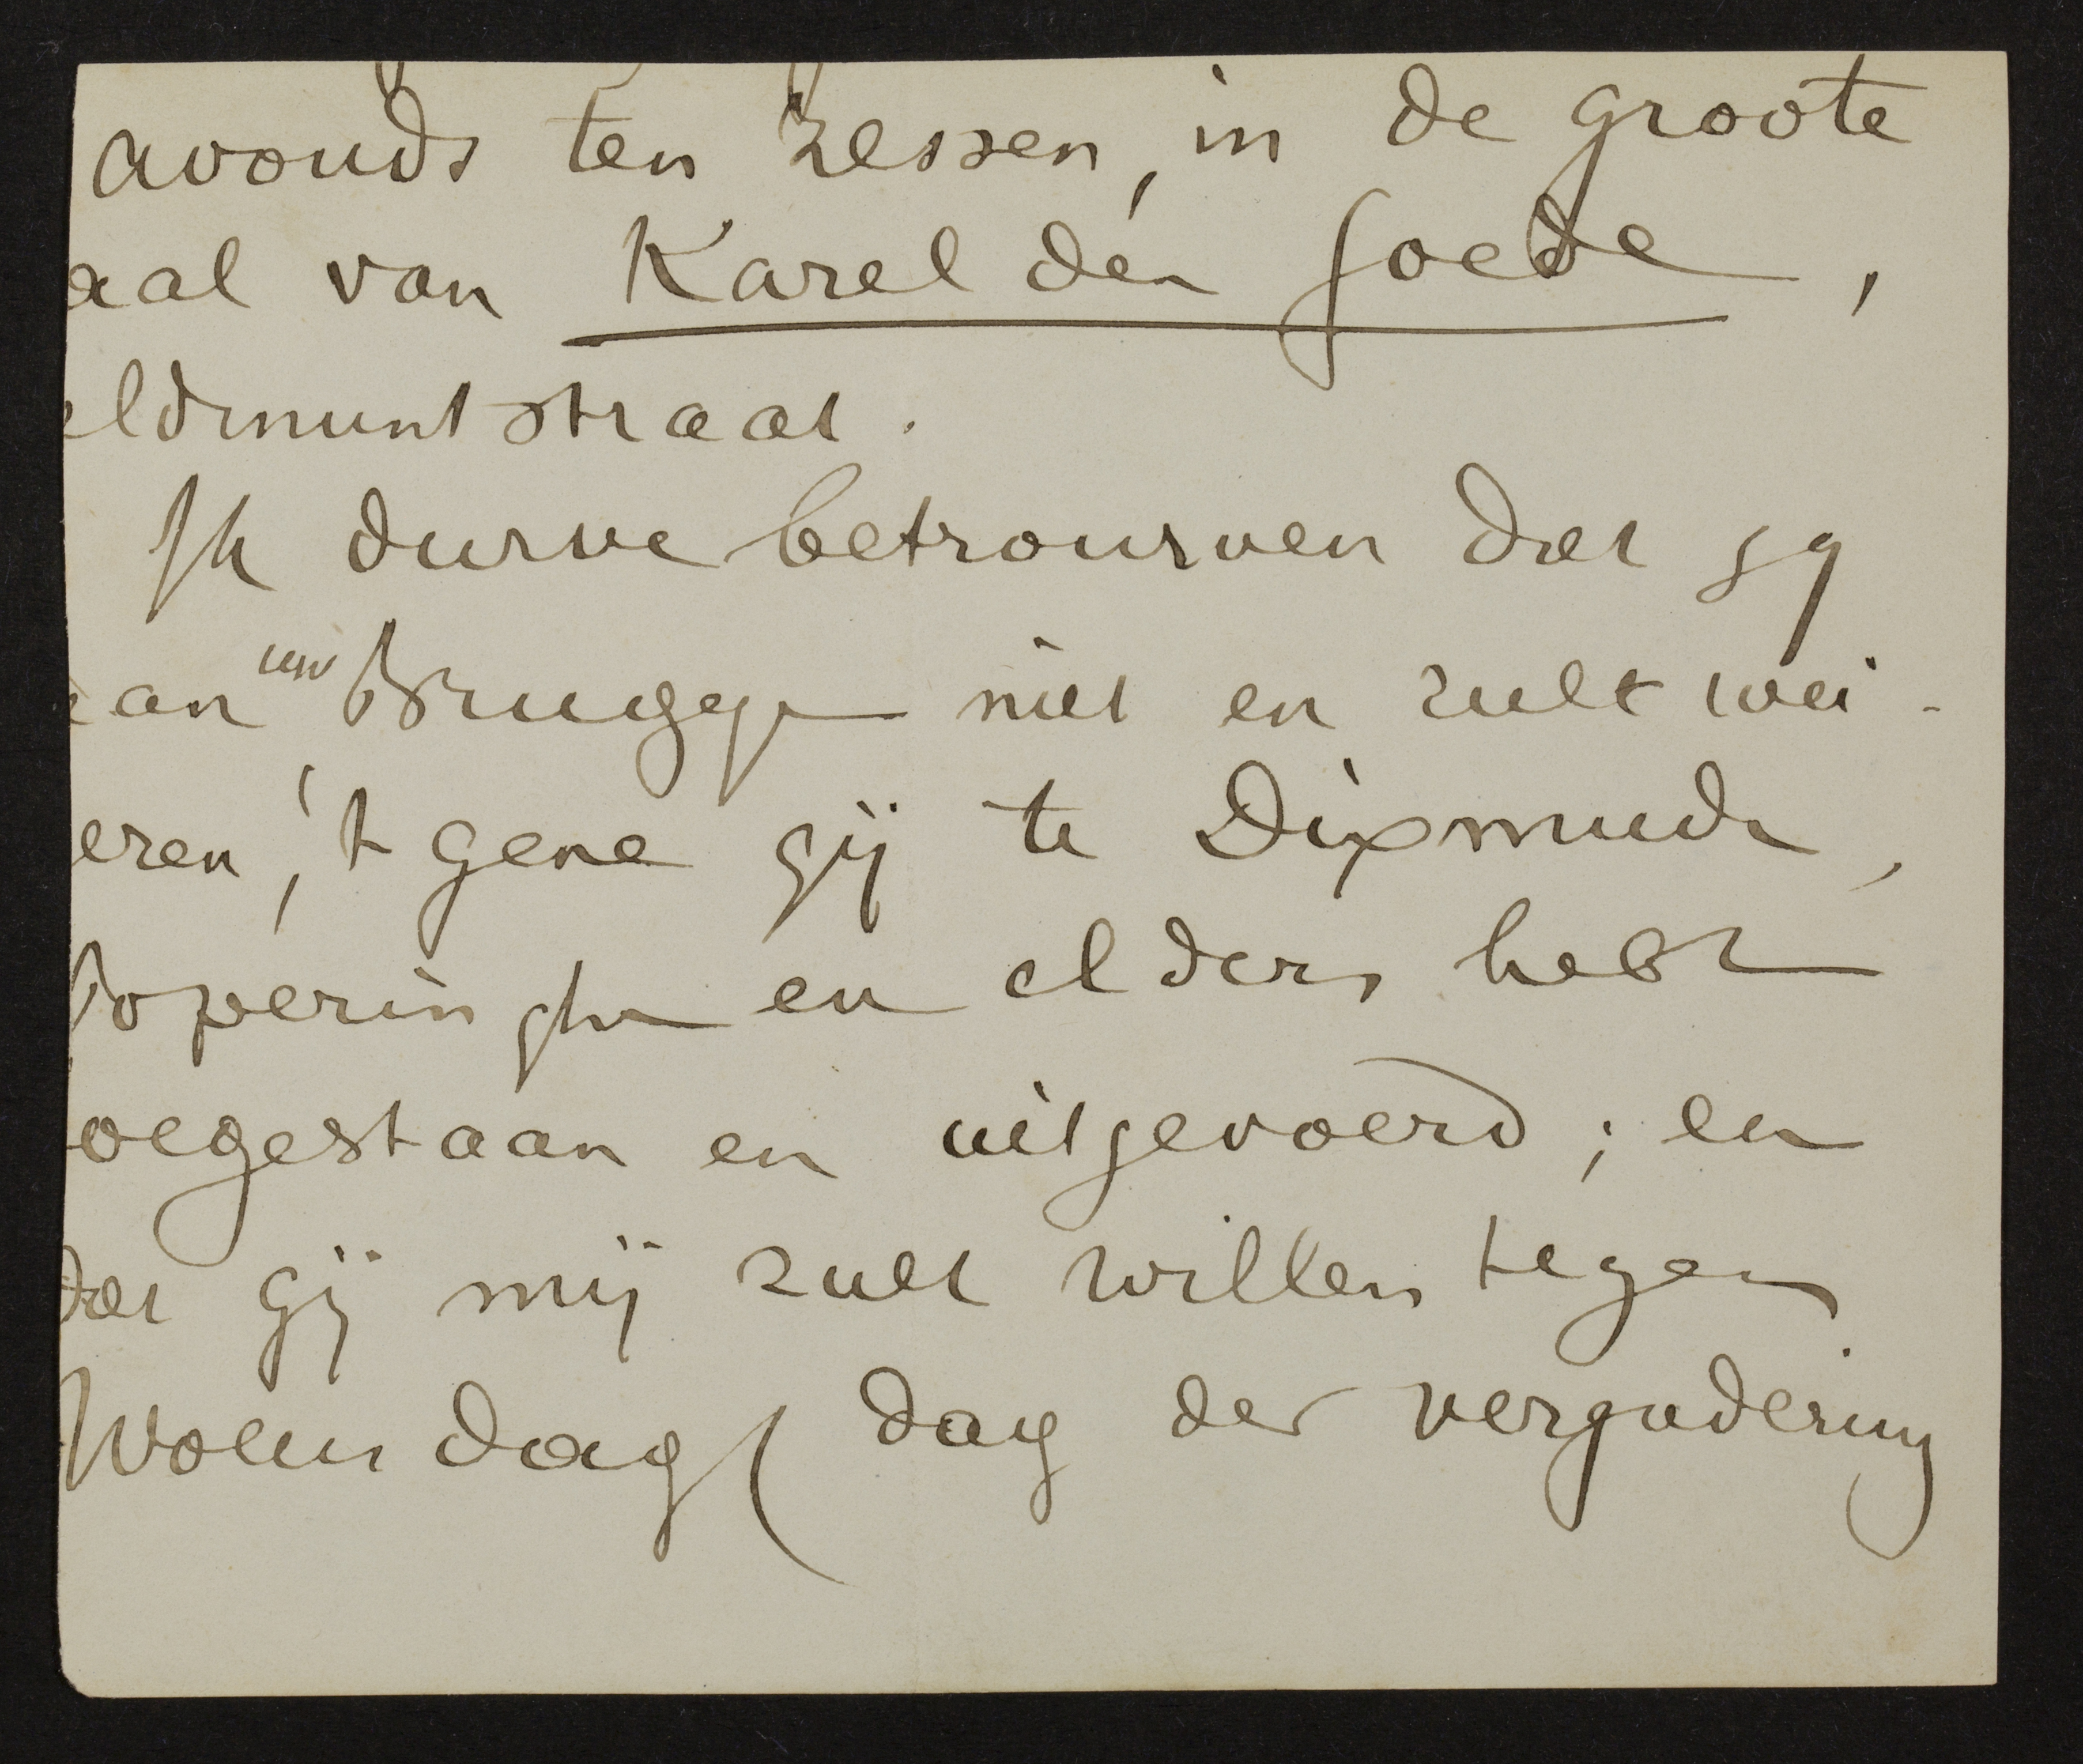 avonds ten zessen, in de groote
aal van Karel den Goede,
eldmuntstraat.
Ik durve betrouwen dat gy
aan uw Brugge niet en zult wei-
eren, 't gene gij te Dixmude,
Poperinghe en elders hebt
oegestaan en uitgevoerd; en
dat gij mij zult willen tegen
Woensdag (dag der vergadering